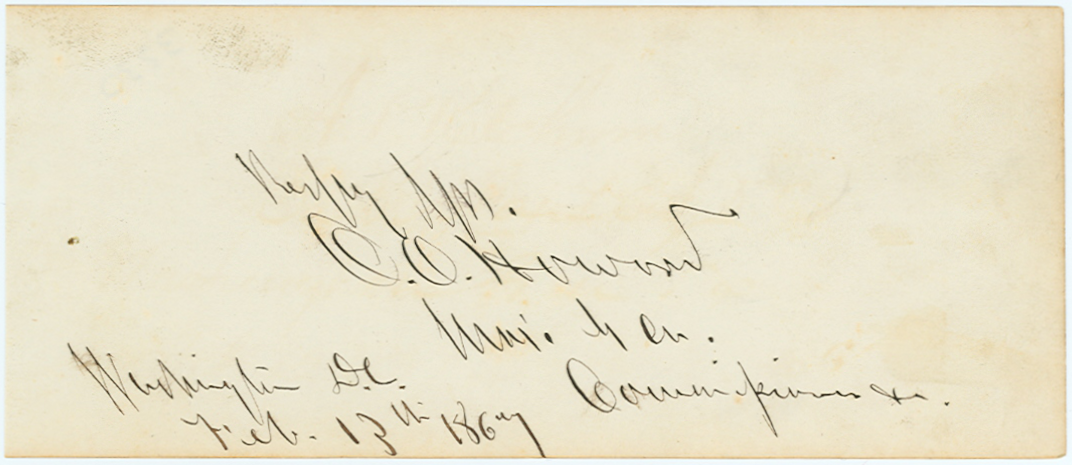 Resply Yrs.
O.O. Howard
Maj. Gen.
Commissioner.
Washington D.C.
Feb. 13th 1867